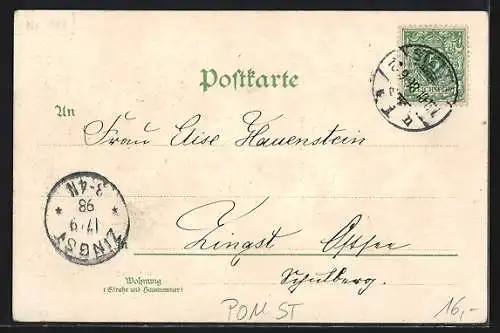 Postkarte
An
Frau Elise Hauenstein
Zingst Ostsee
Schulberg.
Wohnung
(Straße und Hausnummer)
ZINGST
* 17/9 *
98
3-4N
POM ST
16,-